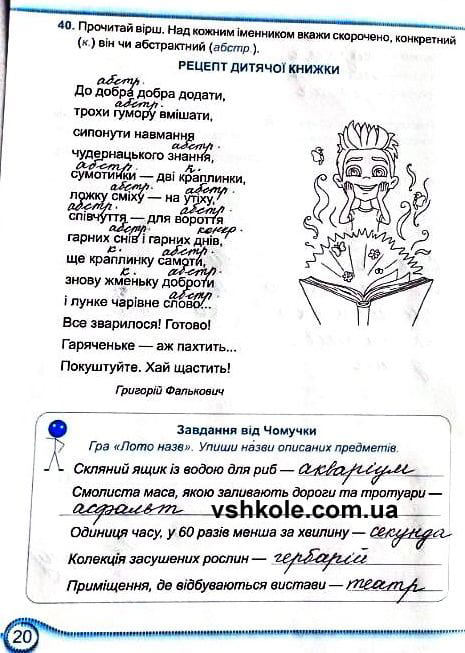 40. Прочитай вірш. Над кожним іменником вкажи скорочено, конкретний
(к.) він чи абстрактний (абстр.).
РЕЦЕПТ ДИТЯЧОЇ КНИЖКИ
абстр.
До добра добра додати,
абстр.
трохи гумору вмішати,
сипонути навмання
абстр.
чудернацького знання,
абстр. к.
сумотинки — дві краплинки,
абстр. абстр.
ложку сміху — на утіху,
абстр. абстр.
співчуття — для вороття
абстр. конкр.
гарних снів і гарних днів,
к. абстр.
ще краплинку самоти,
к. абстр.
знову жменьку доброти
абстр.
і лунке чарівне слово...
Все зварилося! Готово!
Гаряченьке — аж пахтить...
Покуштуйте. Хай щастить!
Григорій Фалькович
Завдання від Чомучки
Гра «Лото назв». Упиши назви описаних предметів.
Скляний ящик із водою для риб — акваріум
Смолиста маса, якою заливають дороги та тротуари —
асфальт vshkole.com.ua
Одиниця часу, у 60 разів менша за хвилину — секунда
Колекція засушених рослин — гербарій
Приміщення, де відбуваються вистави — театр
20